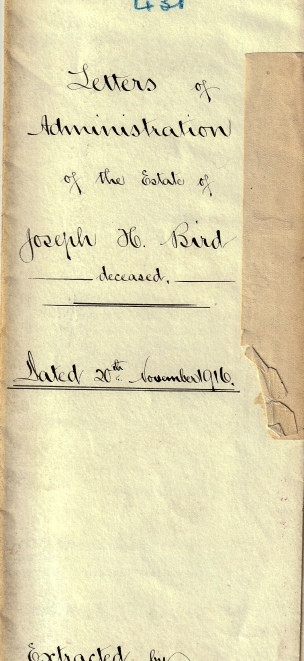 431
Letters of
Administration
of the Estate of
Joseph H. Bird
deceased.
Dated 20th November 1916.
Extracted by